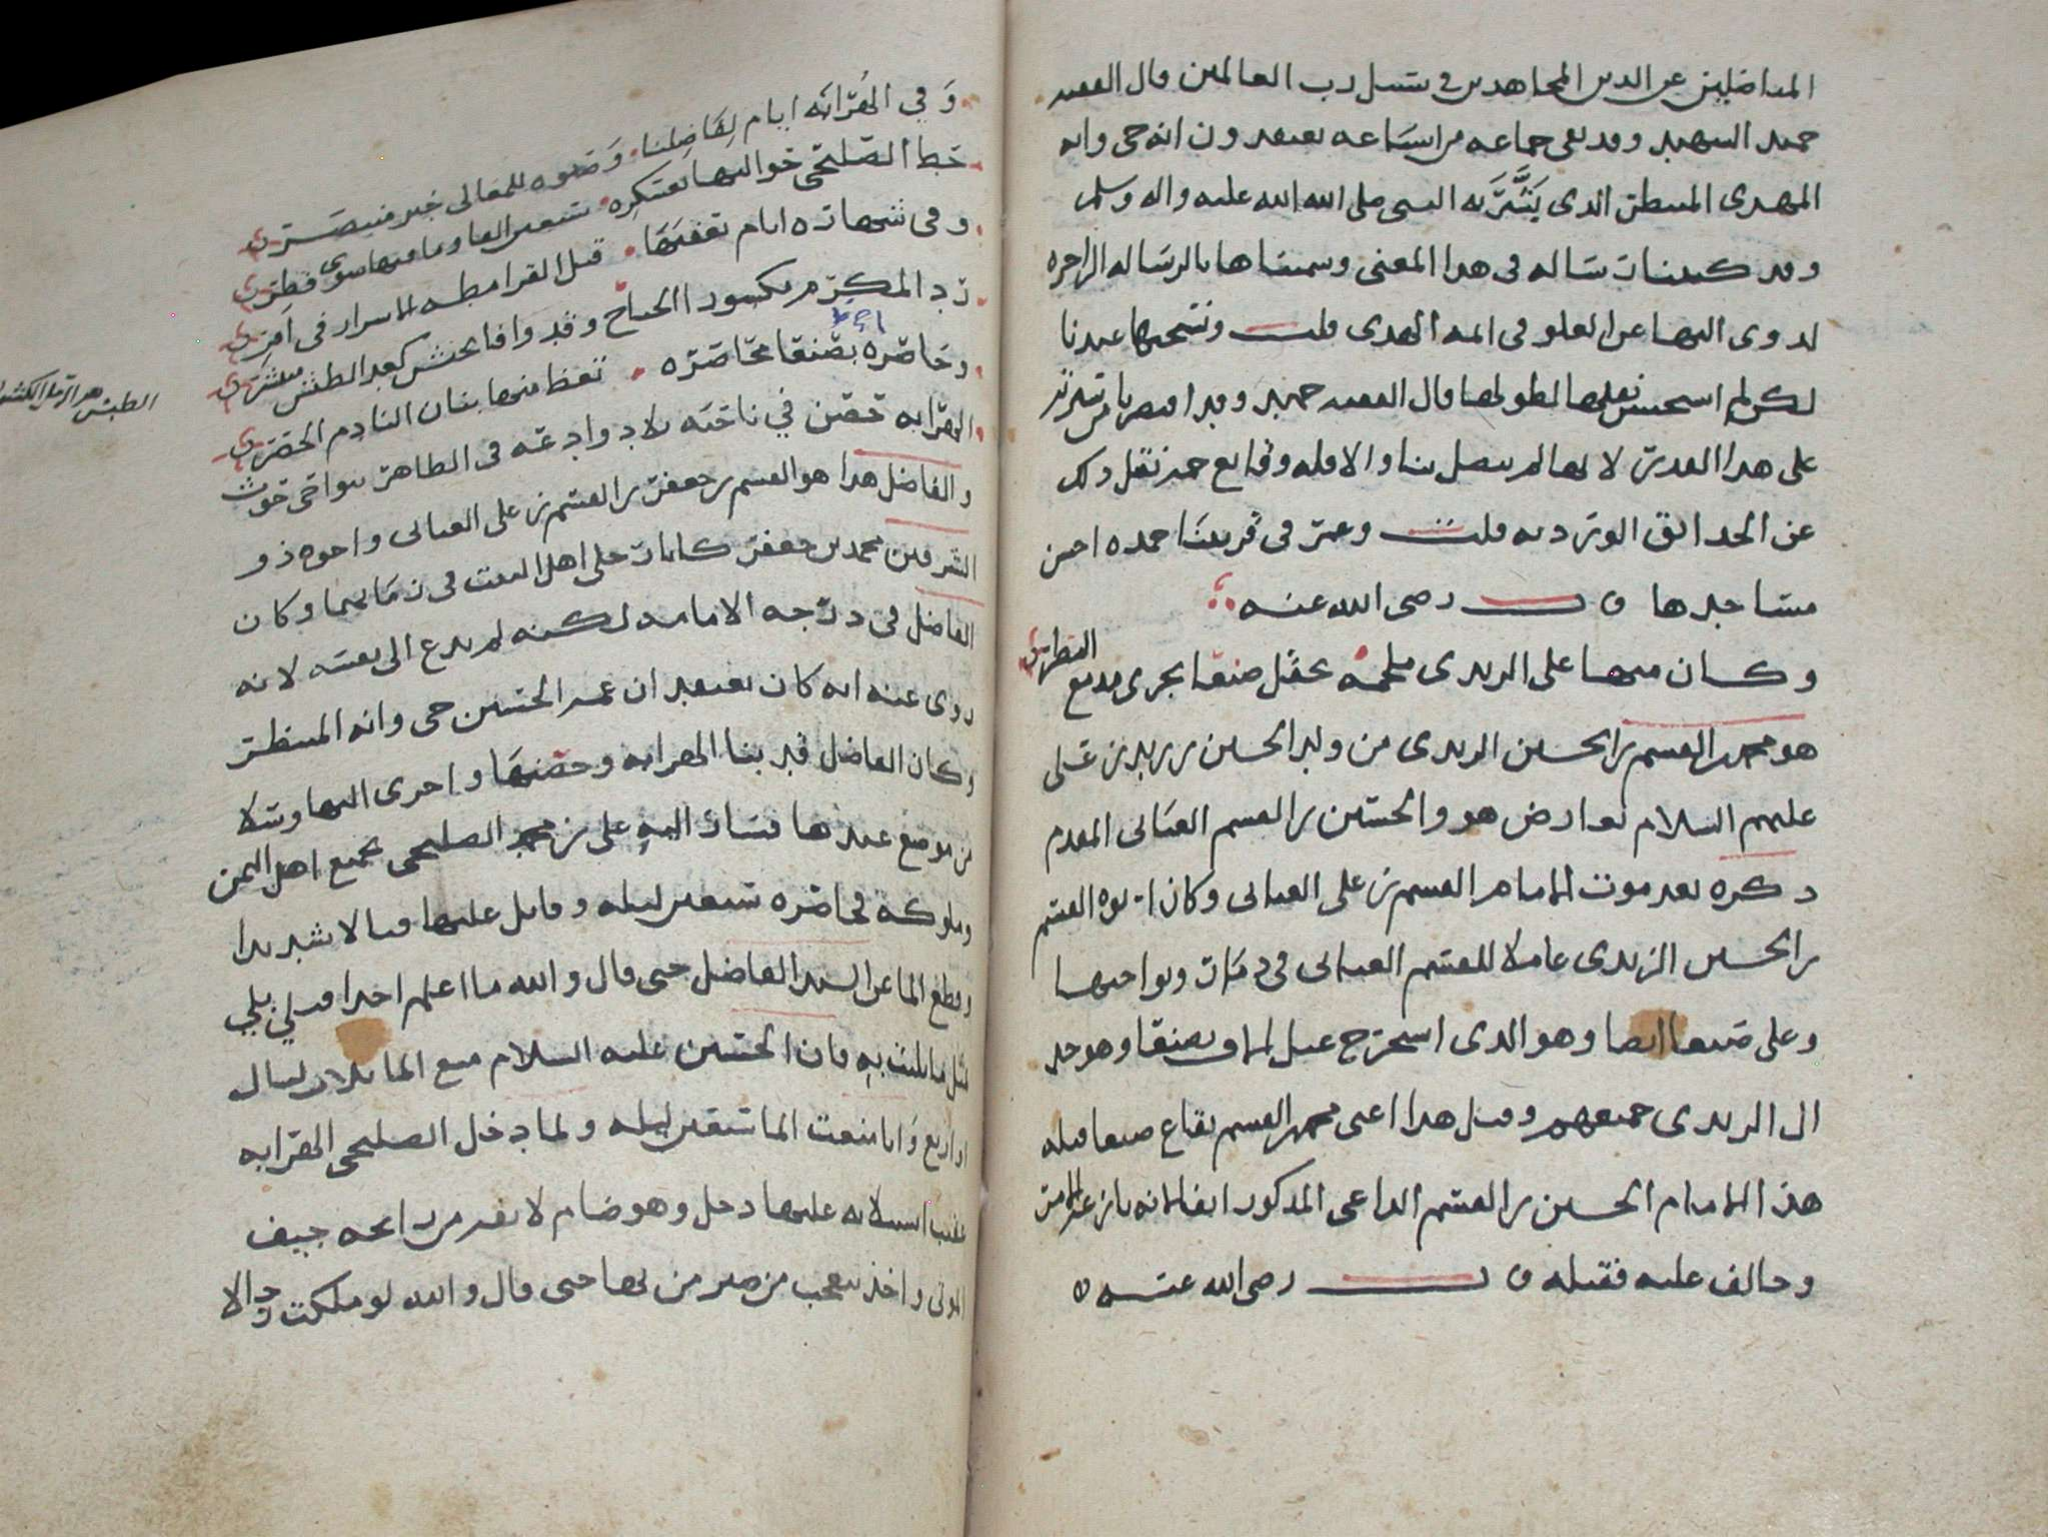 المناضلين عن الدين المجاهدين في سبيل رب العالمين قال الفقيه
حميد الشهيد وقد بقي جماعة من اشياعه يعتقدون انه حي وانه
المهدي المنتظر الذي بَشَّرَ به النبي صلى الله عليه واله وسلم
وقد كتبنا رساله في هذا المعنى وسميناها بالرساله الزاجره
لذوي النهى عن الغلو في ائمه الهدى قلت ونسختها عندنا
لكن لم استحسن نقلها لطولها قال الفقيه حميد وقد اقتصرنا من سيرته
على هذا القدر لانها لم يتصل بنا والا فله وقايع جمه نقل ذلك
عن الحدائق الورديه قلت وعمر في قريتنا حمده احسن
مساجدها قال رضي الله عنه
وكان منها على الزيدي ملحمة بحقل صنعا بجرى مدمع القطر
هو محمد بن القسم بن الحسين الزيدي من ولد الحسين بن زيد بن علي
عليهم السلام تعارض هو والحسين بن القسم العياني المقدم
ذكره بعد موت الامام القسم بن علي العياني وكان ابوه القسم
بن الحسين الزيدي عاملا للقسم العياني في ذمار ونواحيها
وعلى صنعا ايضا وهو الذي استخرج غيل الاف بصنعا وهو جد
ال الزيدي جميعهم وقتل هذا اعني محمد بن القسم بقاع صنعا قتله
هذا الامام الحسين بن القسم الداعي المذكور انفا لانه
وخالف عليه فقتله قال رضي الله عنه
وَفي الهَرَّابَه ايام لِفَاضِلنا وَصنوه للمعالي خير منتصر
خط الصليحي حواليها بعسكره سبعين الفا وما فيها سوى
وفي شهاره ايام تعقبها قتل القرامطه الاسرار في اقر
رد المكرم مكسور الجناح وقد وافا بجيش كعد الطش منتشر
وحاصره بصنعا محاصره تعظ منها بنان النادم الحصر
الطبش هو الرمل
الهرابه حصن في ناحيه بلاد وادعه في الظاهر بنواحي حوث
والفاضل هذا هو القسم بن جعفر بن القسم بن علي العياني واخوه ذو
الشرفين محمد بن جعفر كانا رجلي اهل البيت في زمانهما وكان
الفاضل في درجه الامامه لكنه لم يدع الى نفسه لانه
روي عنه انه كان يعتقد ان عمه الحسين حي وانه المنتظر
وكان الفاضل قد بنا الهرابه وحصنها واجرى اليها وشلا
من موضع عندها فسار اليه علي بن محمد الصليحي بجميع اهل اليمن
وملوكه فحاصره سبعين ليله وقاتل عليها قتالا شديدا
وقطع الماء عن السيد الفاضل حتى قال والله ما اعلم احدا قبلي بلي
مثل ما بليت به فان الحسين عليه السلام منع الماء ثلاث ليال
او اربع وَانا منعت الماء سبعين ليله ولما دخل الصليحي الهرابه
عقب استيلائه عليها دخل وهو ضام لانفه من رائحه جيف
الموتى واخذ يتعجب من صبر من بها حتى قال والله لو ملكت رجالا